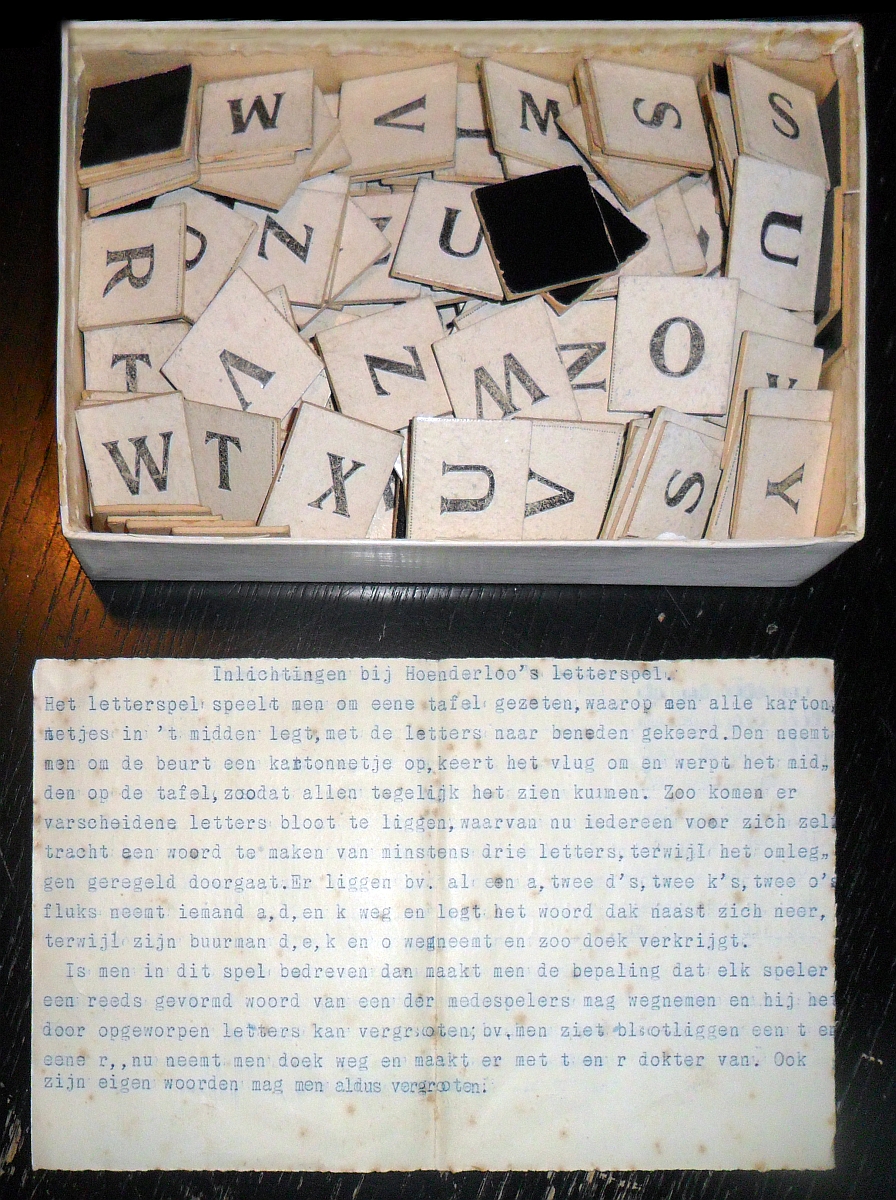 M V M S S
R N U U
T V Z W N O
W T X U V S Y
Inlichtingen bij Hoenderloo's letterspel.
Het letterspel speelt men om eene tafel gezeten,waarop men alle karton,
netjes in 't midden legt,met de letters naar beneden gekeerd.Den neemt
men om de beurt een kartonnetje op,keert het vlug om en werpt het mid„
den op de tafel,zoodat allen tegelijk het zien kunnen. Zoo komen er
varscheidene letters bloot te liggen,waarvan nu iedereen voor zich zelf
tracht een woord te maken van minstens drie letters,terwijl het omleg„
gen geregeld doorgaat.Er liggen bv. al een a,twee d's,twee k's,twee o's
fluks neemt iemand a,d,en k weg en legt het woord dak naast zich neer,
terwijl zijn buurman d,e,k en o wegneemt en zoo doek verkrijgt.
Is men in dit spel bedreven dan maakt men de bepaling dat elk speler
een reeds gevormd woord van een der medespelers mag wegnemen en hij het
door opgeworpen letters kan vergrooten; bv.men ziet blootliggen een t en
eene r,,nu neemt men doek weg en maakt er met t en r dokter van. Ook
zijn eigen woorden mag men aldus vergrooten.